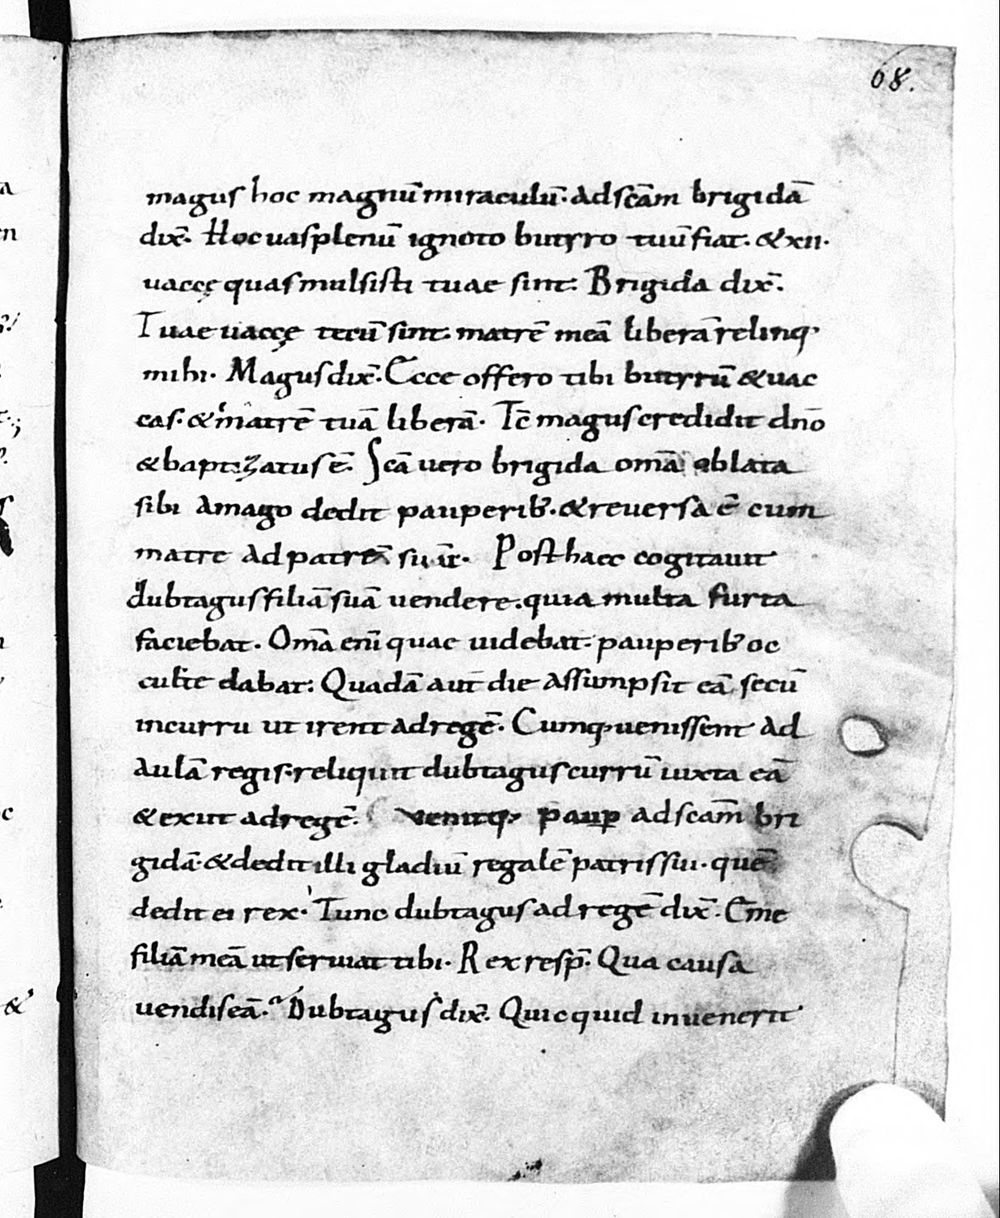 68.
magus hoc magnū miraculū· ad scām brigidā
dix̄· Hoc uas plenū ignoto butyro tuū fiat· & xii·
uaccę quas mulsisti tuae sint· Brigida dix̄·
Tuae uaccę tecū sint· matrē meā liberā relinq·
mihi· Magus dix̄· Ecce offero tibi butyrū & uac
cas· & matrē tuā liberā· Tc̄ magus credidit dn̄o
& baptizatus ē· Scā uero brigida om̄a oblata
sibi a mago dedit pauperib· & reuersa ē cum
matre ad patrē suū· Post haec cogitauit
dubtagus filiā suā uendere· quia multa furta
faciebat· Om̄a eni̅ quae uidebat· pauperib· oc
culte dabat· Quadā aut̄ die assumpsit eā secū
in curru ut irent ad regē· Cumq· uenissent ad
aulā regis· reliquit dubtagus currū iuxta eā
& exiit ad regē· uenitq· paup̱ ad scām bri
gidā· & dedit illi gladiū regalē patris sui· quē
dedit ei rex· Tunc dubtagus ad regē dix̄· Eme
filiā meā ut seruiat tibi· Rex resp̄· Qua causa
uendis eā· Dubtagus dix̄· Quicquid inuenerit